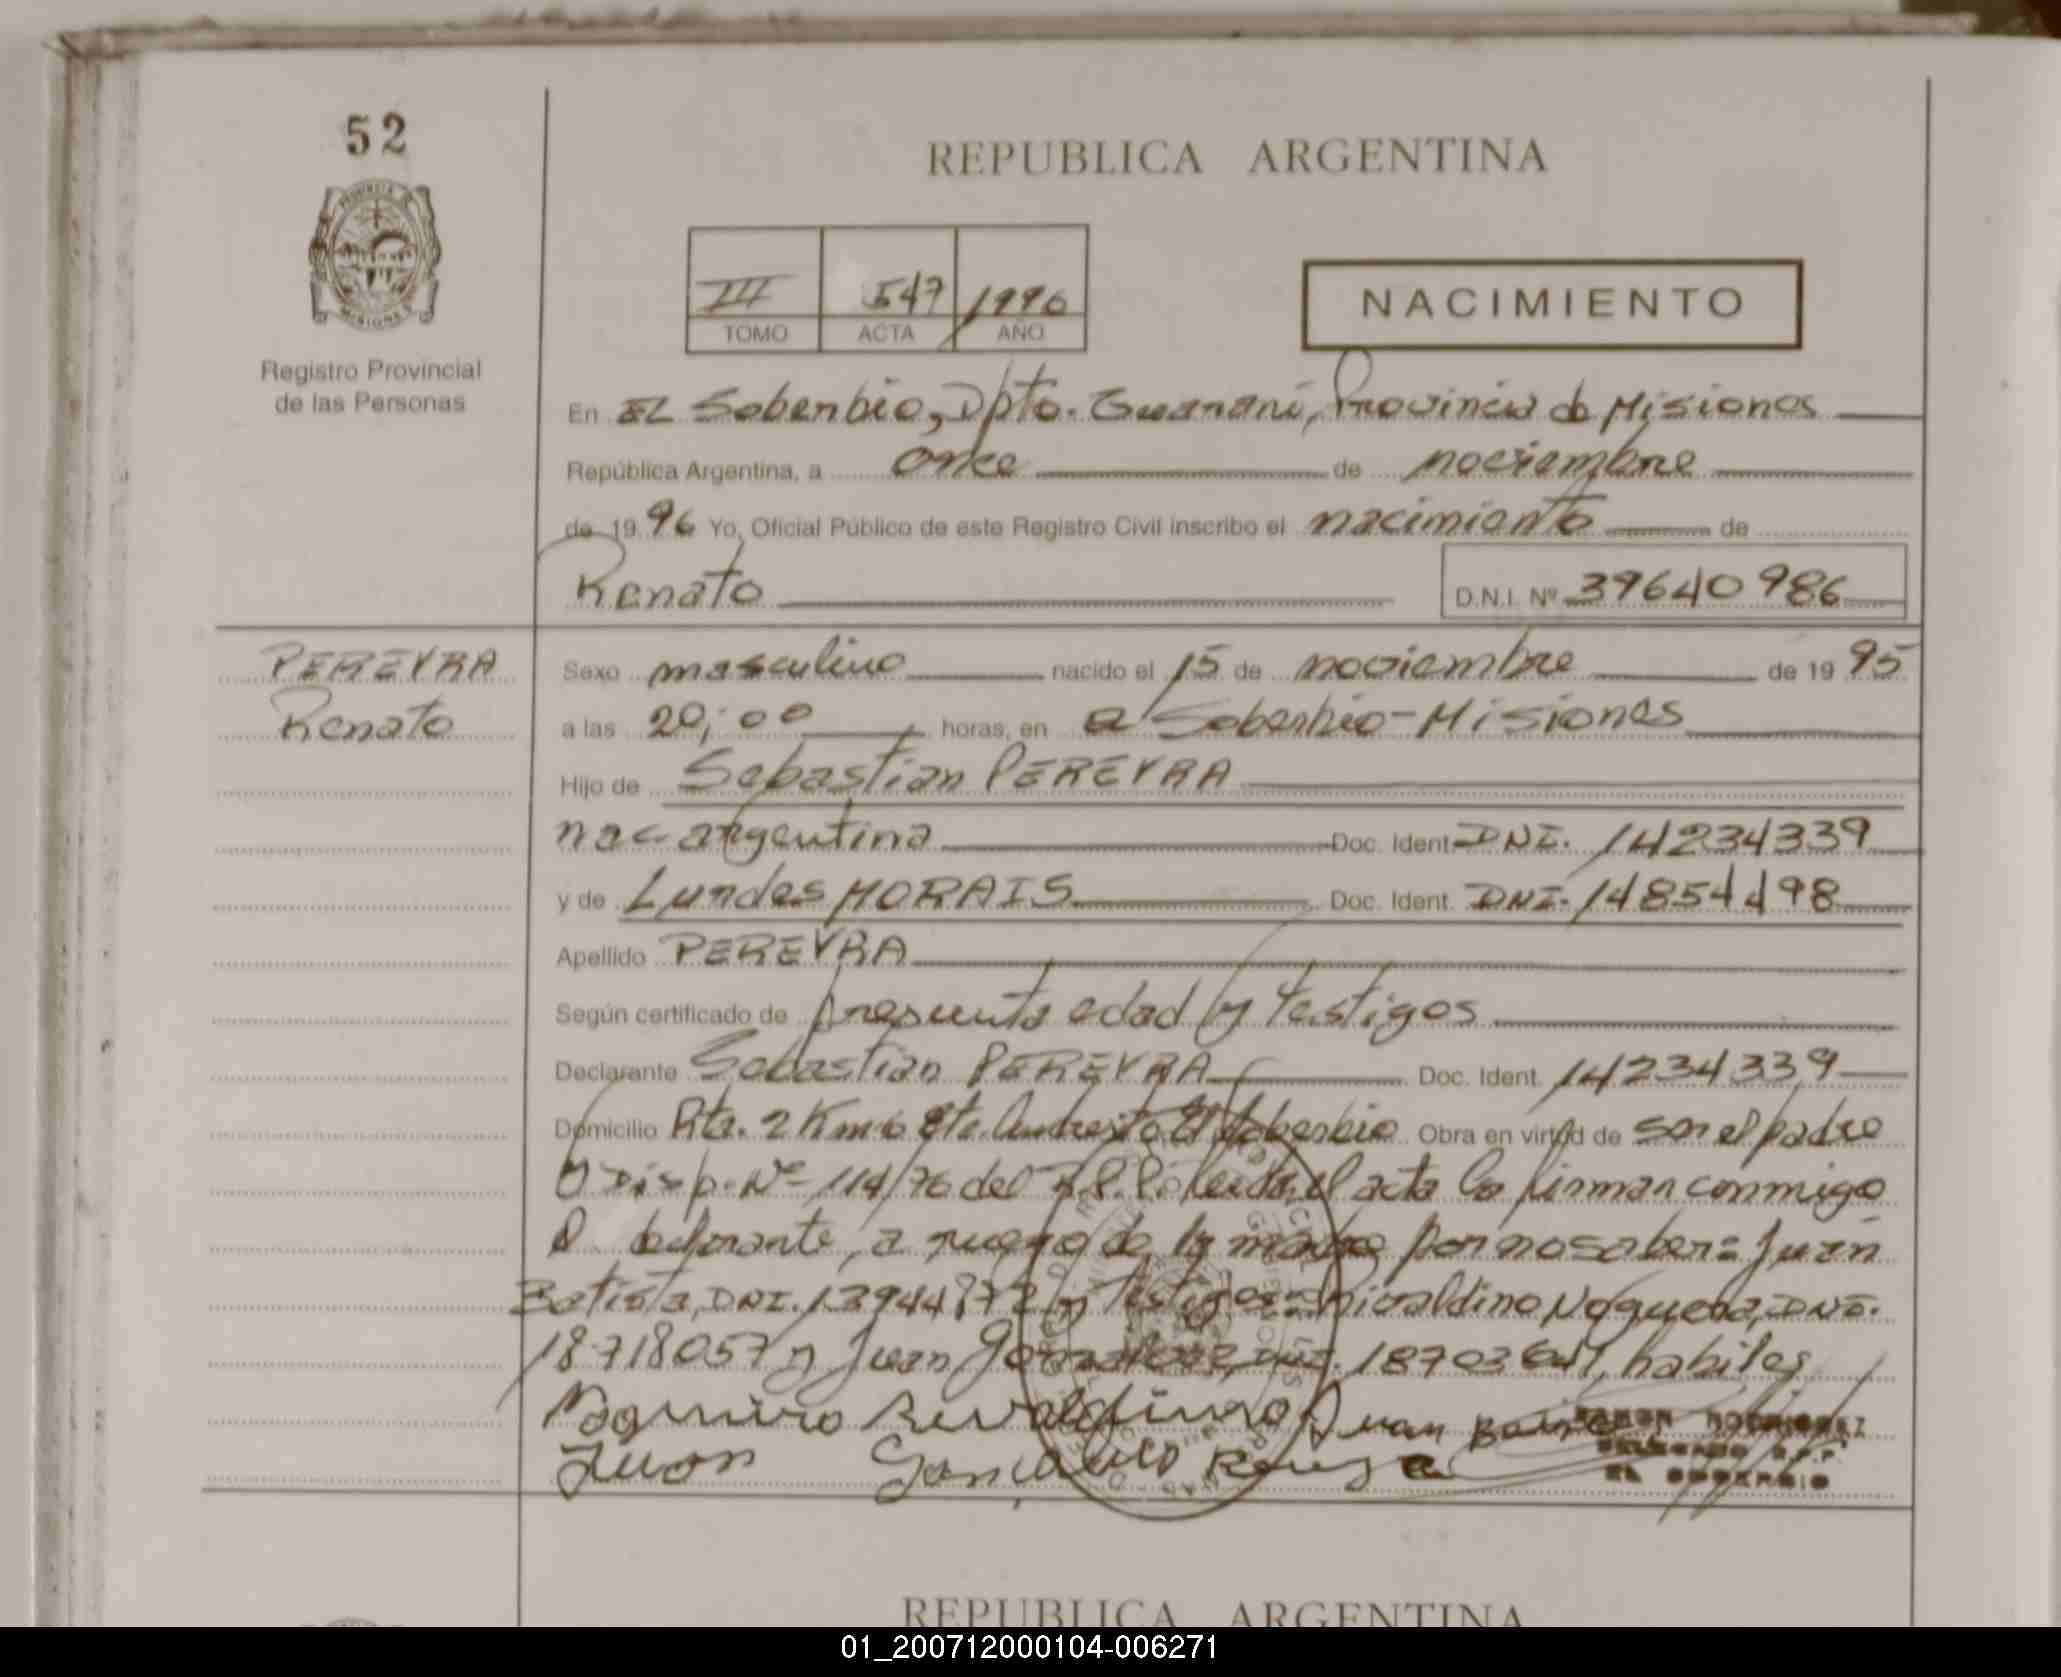 52
REPUBLICA ARGENTINA
PROVINCIA DE
MISIONES
III 547 1996
TOMO ACTA AÑO
NACIMIENTO
Registro Provincial
de las Personas
En EL Soberbio, Dpto. Guaraní, Provincia de Misiones
República Argentina, a once de noviembre
de 19 96 Yo, Oficial Público de este Registro Civil inscribo el nacimiento de
Renato
D.N.I. Nº 39640986
PEREYRA
Renato
Sexo masculino nacido el 15 de noviembre de 19 95
a las 20;00 horas, en El Soberbio-Misiones
Hijo de Sebastian PEREYRA
nac argentina Doc. Ident. DNI. 14234339
y de Lurdes MORAIS Doc. Ident. DNI. 14854498
Apellido PEREYRA
Según certificado de presunta edad y testigos
Declarante Sebastian PEREYRA Doc. Ident. 14234339
Domicilio Rta. 2 Km 6 El Soberbio Obra en virtud de ser el padre
y Disp. Nº 114/76 del R.P.P. Leida el acta la firman conmigo
el declarante, a ruego de la madre por no saber: Juan
Batista, DNI. y testigos: Noguera, DNI.
18718057 y Juan DNI. habiles
Juan
Juan
RAMON RODRIGUEZ
EL SOBERBIO
REPUBLICA ARGENTINA
01_200712000104-006271